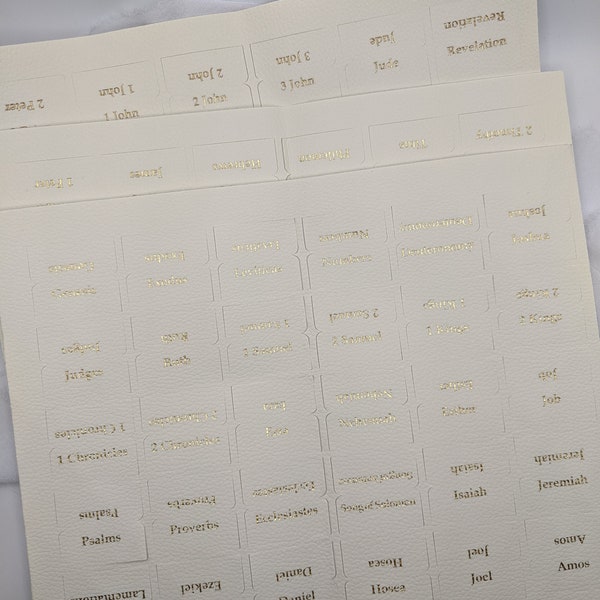 2 Peter 1 John 2 John 3 John Jude Revelation
1 John 2 John 3 John Jude Revelation
1 Peter James Hebrews Philemon Titus 2 Timothy
Genesis Exodus Leviticus Numbers Deuteronomy Joshua
Genesis Exodus Leviticus Numbers Deuteronomy Joshua
Judges Ruth 1 Samuel 2 Samuel 1 Kings 2 Kings
Judges Ruth 1 Samuel 2 Samuel 1 Kings 2 Kings
1 Chronicles 2 Chronicles Ezra Nehemiah Esther Job
1 Chronicles 2 Chronicles Ezra Nehemiah Esther Job
Psalms Proverbs Ecclesiastes Isaiah Jeremiah
Psalms Proverbs Ecclesiastes Isaiah Jeremiah
Lamentations Ezekiel Daniel Hosea Joel Amos
Daniel Hosea Joel Amos